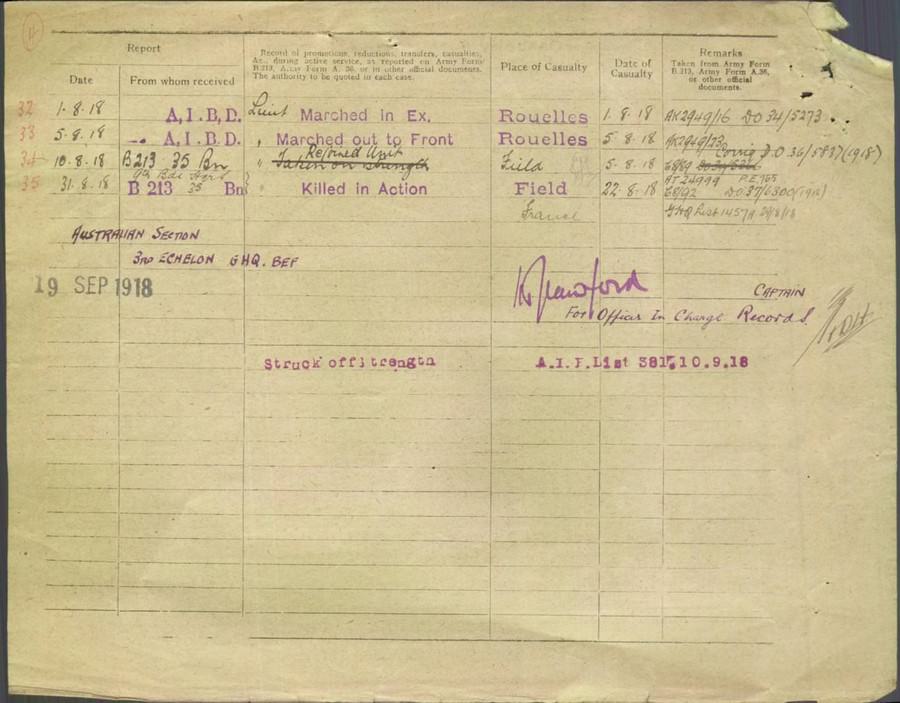 11
Report
Date
From whom received
Record of promotions, reductions, transfers, casualties,
&c., during active service, as reported on Army Form
B.213, Army Form A. 36, or in other official documents.
The authority to be quoted in each case.
Place of Casualty
Date of
Casualty
Remarks
Taken from Army Form
B.213, Army Form A.36,
or other official
documents.
32 1.8.18 A.I.B.D. Lieut Marched in Ex. Rouelles 1.8.18 AK2949/16 DO 34/5273
33 5.8.18 A.I.B.D. " Marched out to Front Rouelles 5.8.18 AK2949/23
Rejoined Unit Corrig D.O 36/5837 (1918)
34 10.8.18 B213 35 Bn " Taken on Strength Field 5.8.18
9th Bde Hqrs AT 24999 P.E 765
35 31.8.18 B 213 35 Bn " Killed in Action Field 22.8.18 DO 37/6300
France GHQ List 1457A
Australian Section
3rd Echelon GHQ. BEF
19 SEP 1918
Captain
For Officer In Charge Records.
Struck off strength A.I.F. List 381. 10.9.18